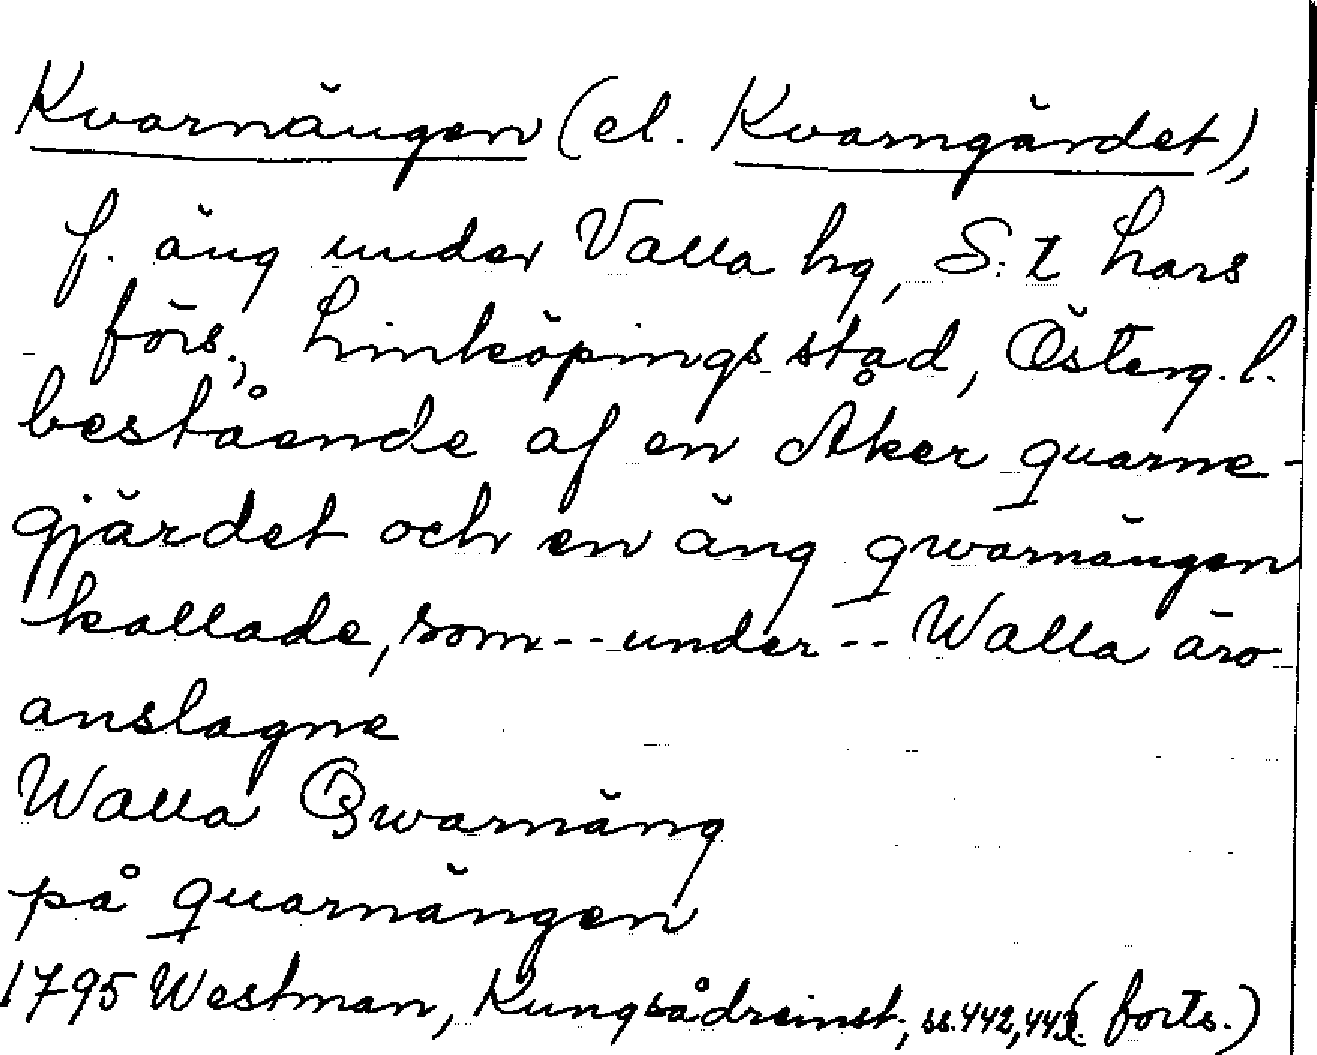 Kvarnängen (el. Kvarngärdet),
f. äng under Valla hg, S:t Lars
förs., Linköpings stad, Österg. l.
bestående af en Åker quarne-
gjärdet och en äng qwarnängen
kallade, som -- under -- Walla äro
anslagne
Walla Qwarnäng
på quarnängen
1795 Westman, Kungsådreinst., ss. 442, 443. (forts.)